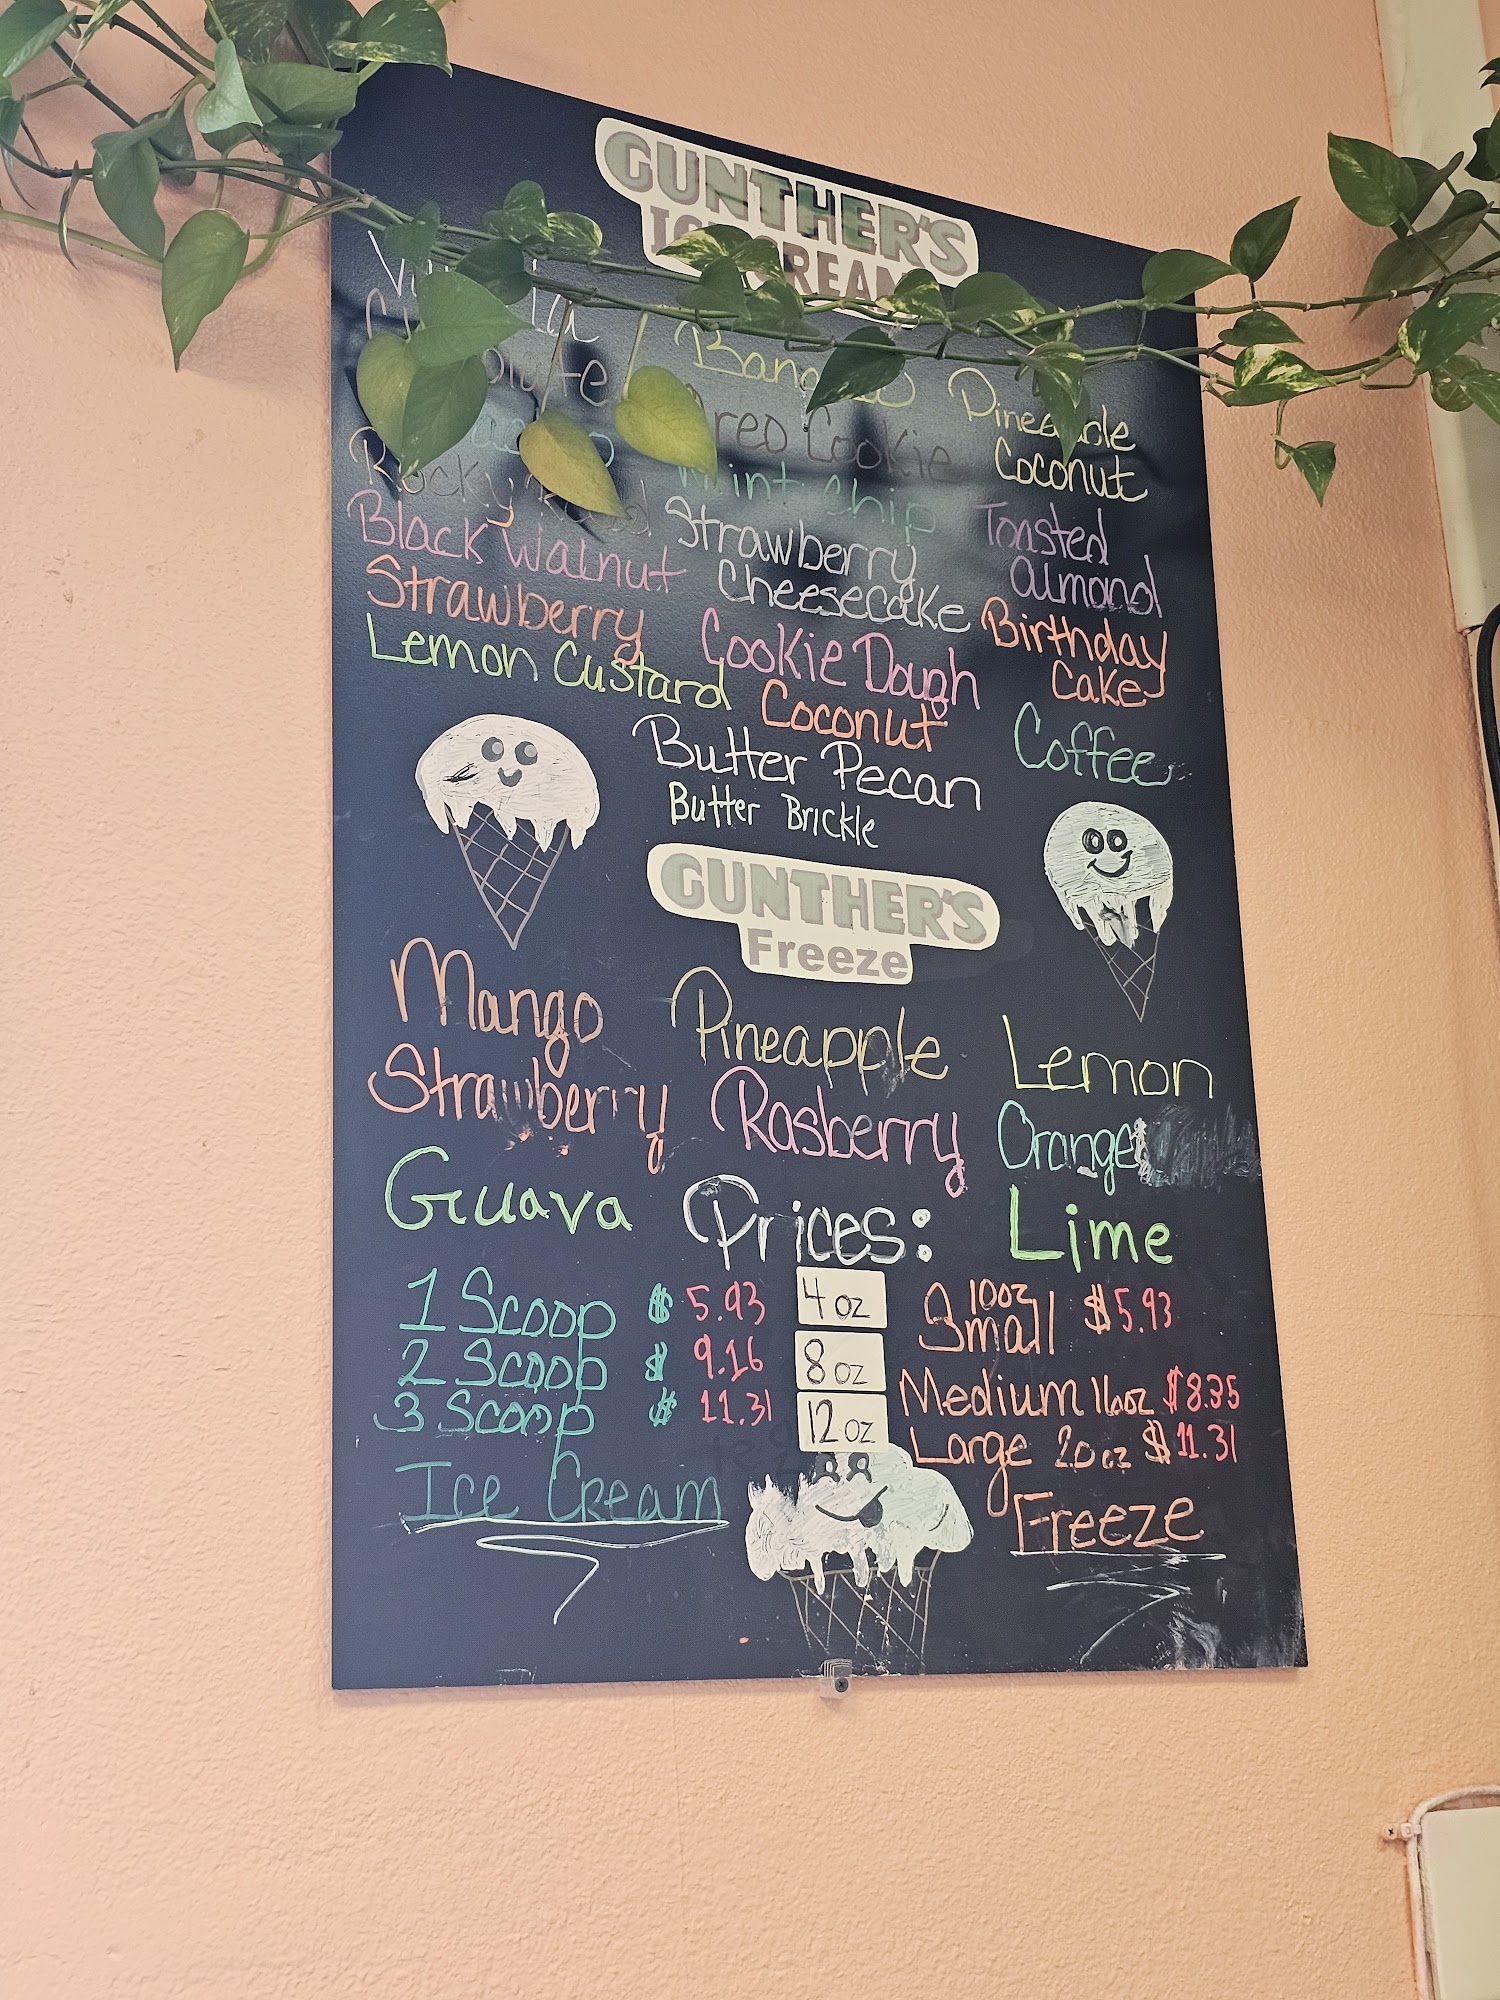 GUNTHER'S
ICE CREAM
Vanilla
Chocolate
Rocky Road
Black Walnut
Strawberry
Lemon Custard
Banana
Oreo Cookie
Mint Chip
Strawberry
Cheesecake
Cookie Dough
Coconut
Butter Pecan
Butter Brickle
Pineapple
Coconut
Toasted
almond
Birthday
Cake
Coffee
GUNTHER'S
Freeze
Mango
Pineapple
Lemon
Strawberry
Rasberry
Orange
Guava
Lime
Prices:
1 Scoop $ 5.93
2 Scoop $ 9.16
3 Scoop $ 11.31
Ice Cream
4 oz
8 oz
12 oz
10oz
Small $5.93
Medium 16oz $8.35
Large 20oz $11.31
Freeze